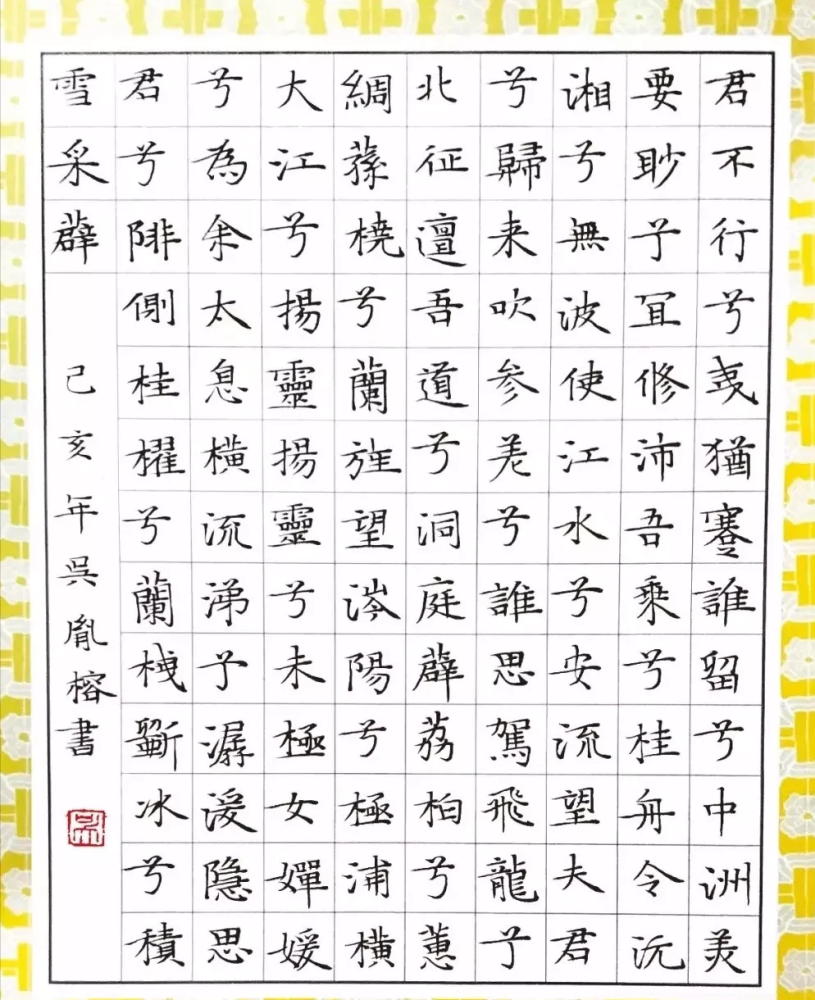 君不行兮夷猶蹇誰留兮中洲美
要眇子冝修沛吾乘兮桂舟令沅
湘兮無波使江水兮安流望夫君
兮歸来吹参差兮誰思駕飛龍兮
北征邅吾道兮洞庭薜荔柏兮蕙
綢蓀橈兮蘭旌望涔陽兮極浦橫
大江兮揚靈揚靈兮未極女嬋媛
兮為余太息橫流涕予潺湲隱思
君兮陫側桂櫂兮蘭枻斲冰兮積
雪采薜
己亥年吳胤榕書